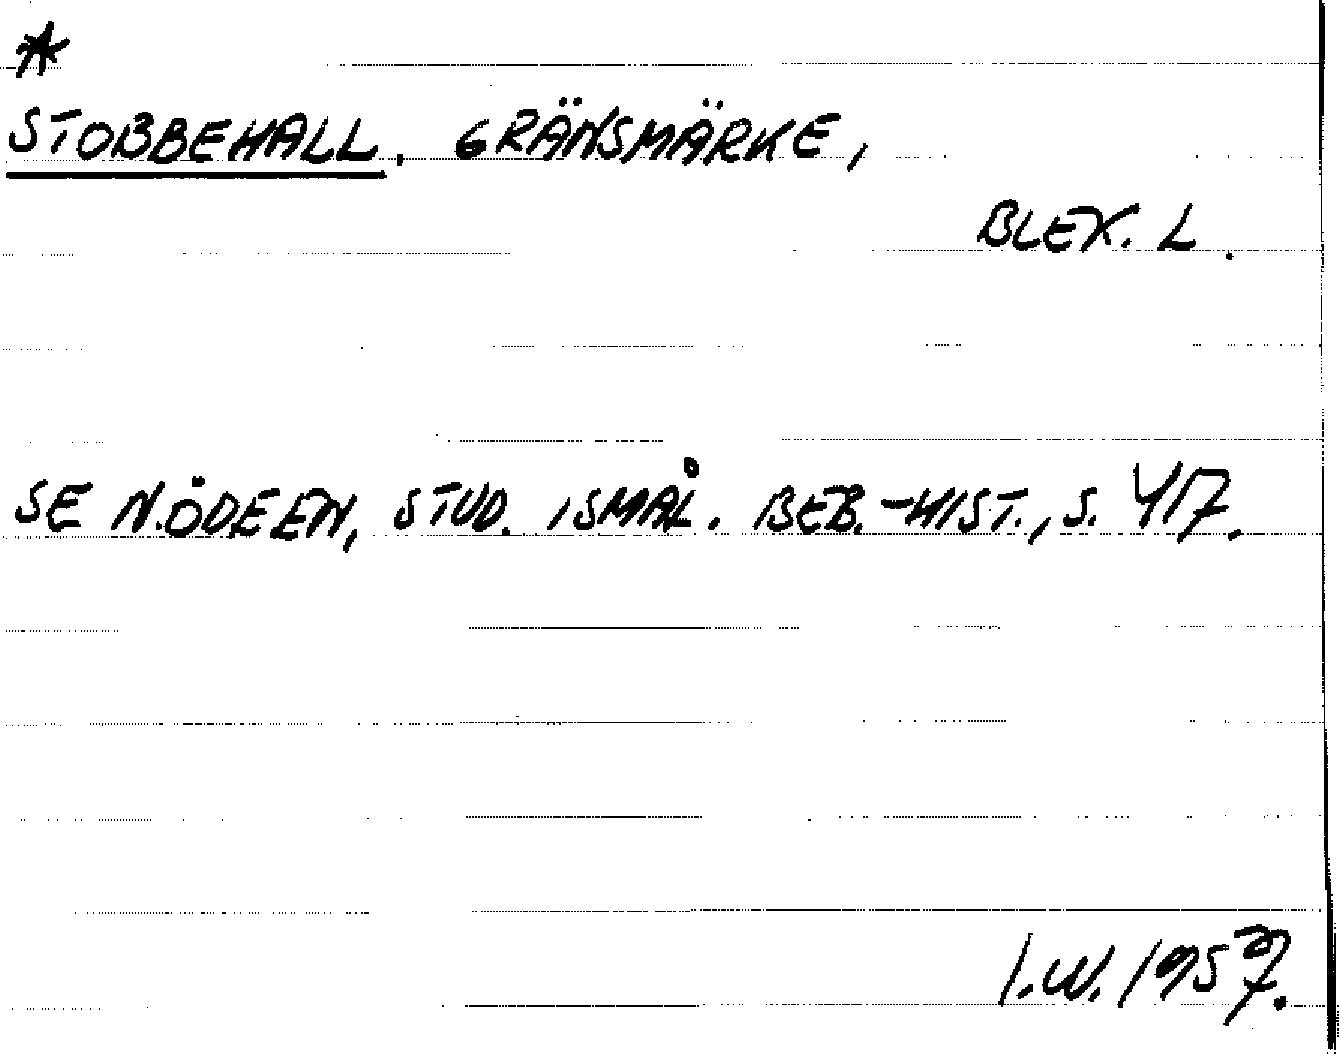 *
STOBBEHALL, GRÄNSMÄRKE,
BLEK. L.
SE N. ÖDEEN, STUD. I SMÅL. BEB.-HIST., S. 417.
I.W. 1957.